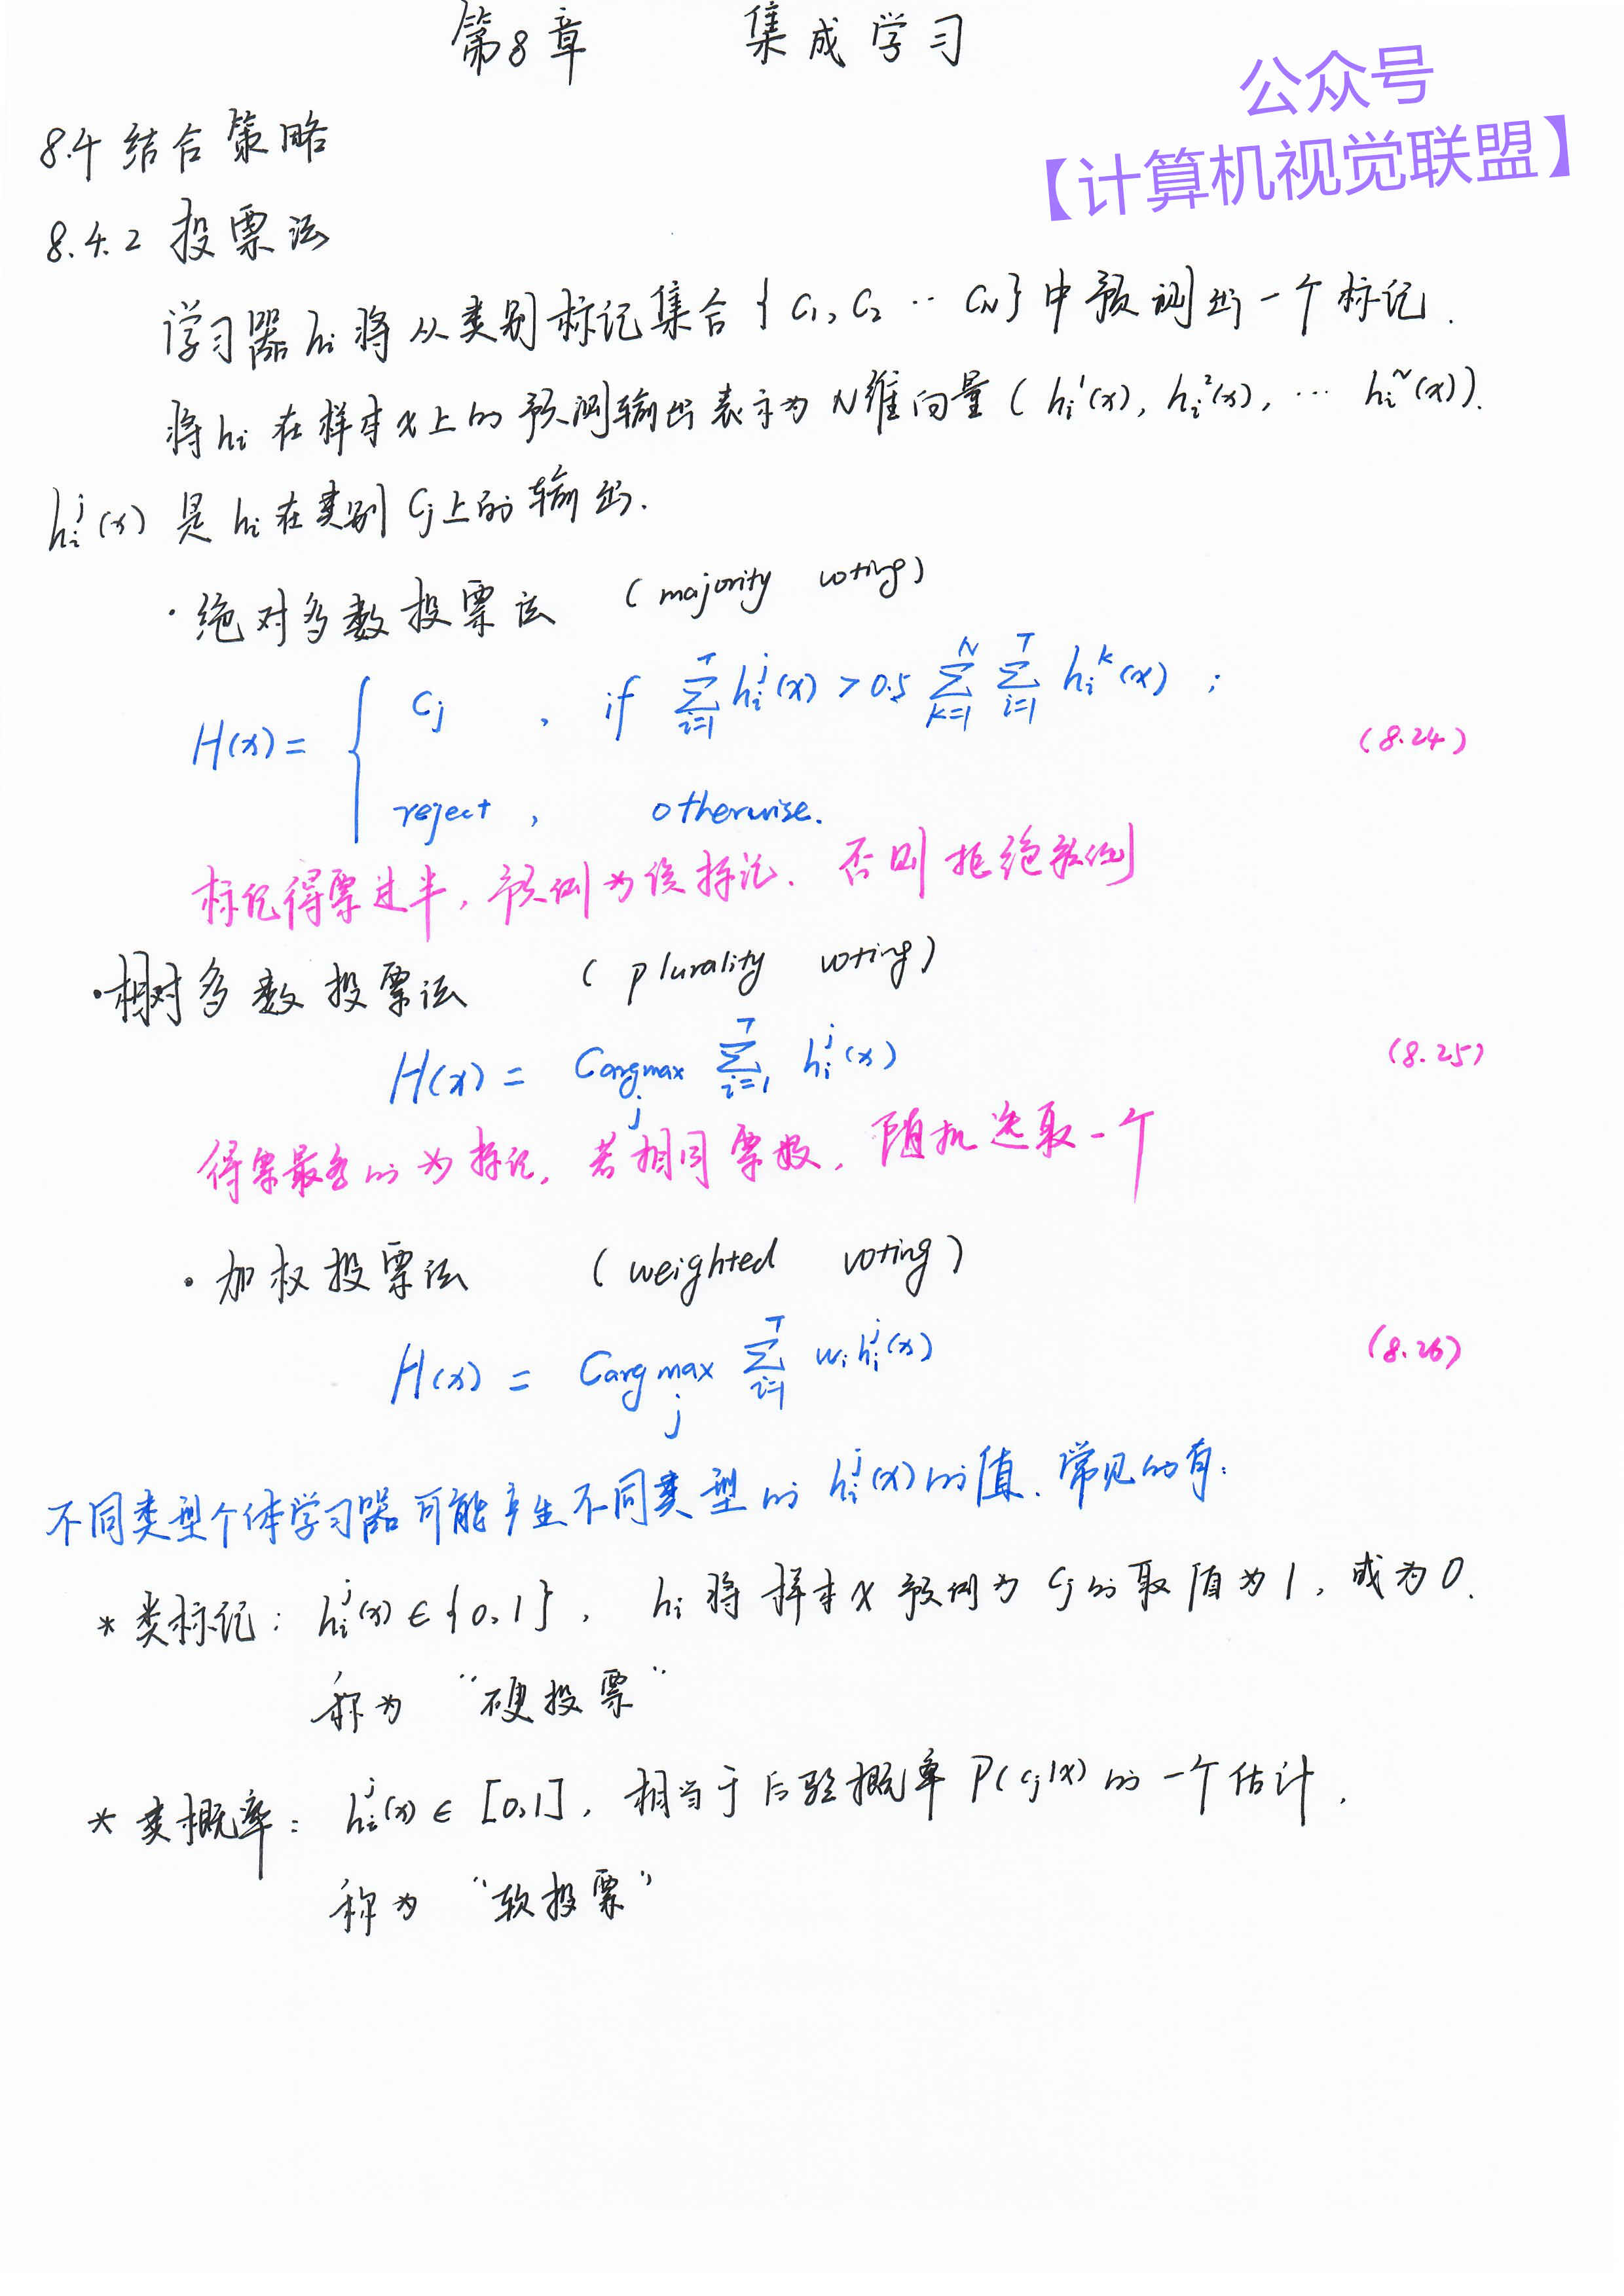 第8章 集成学习
公众号
【计算机视觉联盟】
8.4 结合策略
8.4.2 投票法
学习器 hᵢ 将从类别标记集合 {c₁, c₂ ‥ c_N} 中预测出一个标记.
将 hᵢ 在样本 x 上的预测输出表示为 N维向量 (hᵢ¹(x), hᵢ²(x), … hᵢᴺ(x)).
hᵢʲ(x) 是 hᵢ 在类别 Cⱼ 上的输出.
· 绝对多数投票法 (majority voting)
H(x) = { Cⱼ , if ∑_{i=1}^{T} hᵢʲ(x) > 0.5 ∑_{k=1}^{N} ∑_{i=1}^{T} hᵢᵏ(x) ;
(8.24)
reject , otherwise.
标记得票过半, 预测为该标记. 否则拒绝预测
· 相对多数投票法 (plurality voting)
H(x) = C_{argmax_j} ∑_{i=1}^{T} hᵢʲ(x) (8.25)
得票最多的为标记, 若相同票数, 随机选取一个
· 加权投票法 (weighted voting)
H(x) = C_{argmax_j} ∑_{i=1}^{T} wᵢhᵢʲ(x) (8.26)
不同类型个体学习器可能产生不同类型的 hᵢʲ(x) 的值. 常见的有:
* 类标记: hᵢʲ(x) ∈ {0, 1}, hᵢ 将样本 x 预测为 cⱼ 的取值为 1, 或为 0.
称为 “硬投票”
* 类概率: hᵢʲ(x) ∈ [0,1], 相当于后验概率 P(cⱼ|x) 的一个估计.
称为 “软投票”